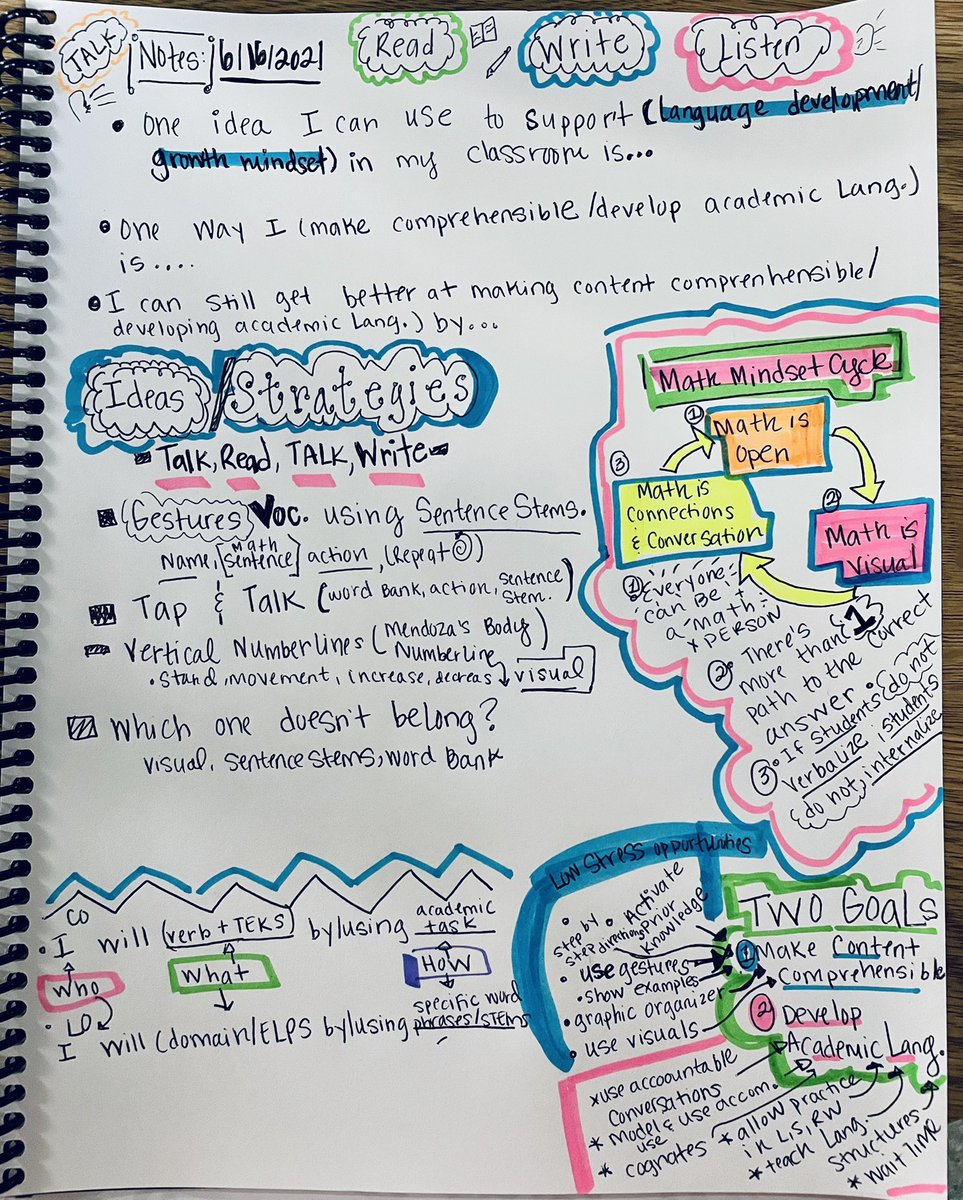 TALK
Notes: 6/16/2021
Read
Write
Listen
• One idea I can use to support (language development/
growth mindset) in my classroom is...
• One way I (make comprehensible/develop academic Lang.)
is....
• I can still get better at making content comprenhensible/
developing academic Lang.) by...
Ideas / Strategies
Talk, Read, TALK, Write
Gestures Voc. using Sentence Stems.
Name, [math sentence] action, (Repeat)
Tap & Talk (word Bank, action, sentence stem.)
Vertical Numberlines (Mendoza's Body
Numberline)
• Stand, movement, increase, decreas ↓ visual
Which one doesn't belong?
visual, sentence stems, word Bank
Math Mindset Cycle
① Math is
Open
② Math is
Visual
③ Math is
Connections
& Conversation
① Everyone
can Be
a "math"
PERSON
② There's
more than 1
path to the correct
answer.
③ • If students do not
verbalize, students
do not internalize
CO
• I will (verb + TEKS) by/using academic
task
who
what
How
• LO
I will (domain/ELPS by/using specific word
phrases/STEMS
Low Stress opportunities
• Step by
step directions
• Activate
prior
knowledge
• use gestures
• show examples
• graphic organizer
• use visuals
TWO GOALS
① Make Content
comprehensible
② Develop
Academic Lang.
x use accoountable
conversations
* model & use accom.
use
* cognates
* allow practice
in L, S, RW
* teach Lang.
structures
* wait time